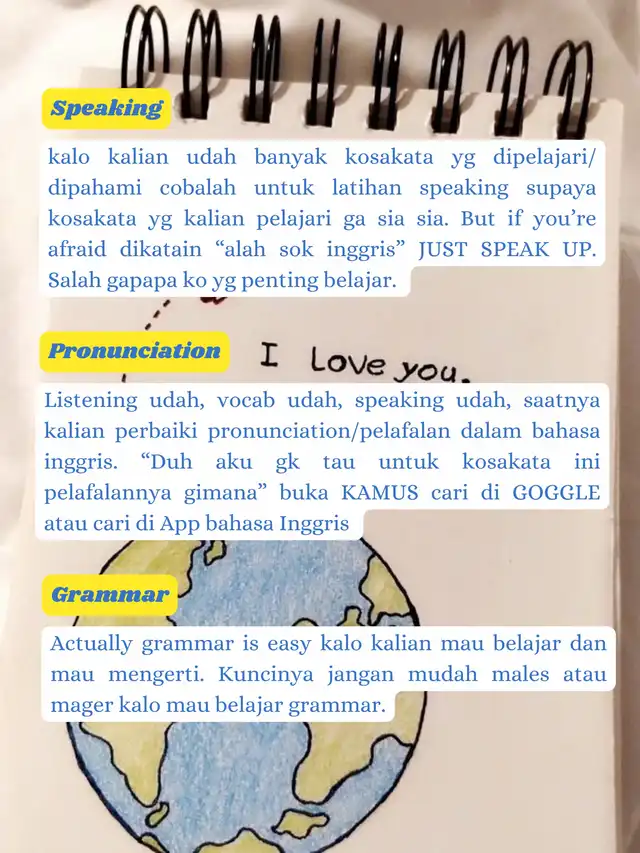 Speaking
kalo kalian udah banyak kosakata yg dipelajari/
dipahami cobalah untuk latihan speaking supaya
kosakata yg kalian pelajari ga sia sia. But if you’re
afraid dikatain “alah sok inggris” JUST SPEAK UP.
Salah gapapa ko yg penting belajar.
I Love you.
Pronunciation
Listening udah, vocab udah, speaking udah, saatnya
kalian perbaiki pronunciation/pelafalan dalam bahasa
inggris. “Duh aku gk tau untuk kosakata ini
pelafalannya gimana” buka KAMUS cari di GOGGLE
atau cari di App bahasa Inggris
Grammar
Actually grammar is easy kalo kalian mau belajar dan
mau mengerti. Kuncinya jangan mudah males atau
mager kalo mau belajar grammar.